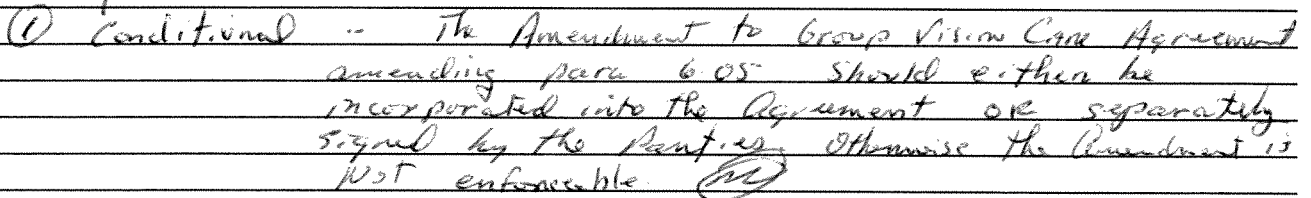 ① Conditional -- The Amendment to Group Vision Care Agreement
amending para 6.05 should either be
incorporated into the Agreement or separately
signed by the parties. Otherwise the Amendment is
Not enforceable.